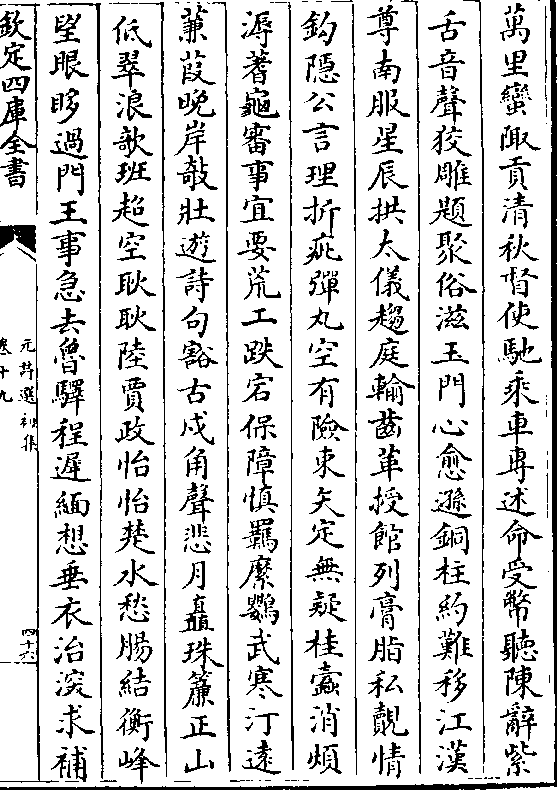 萬里蠻陬貢清秋督使馳乘車專述命受幣聽陳辭紫
舌音聲狡雕題聚俗滋玉門心愈遜銅柱約難移江漢
尊南服星辰拱太儀趨庭輸齒革授館列膏脂私覿情
鈎隱公言理折疵彈丸空有險束矢定無疑桂蠧消煩
溽蓍龜審事宜要荒工跌宕保障慎羈縻鸚武寒汀遠
蒹葭晚岸攲壯遊詩句豁古戍角聲悲月矗珠簾正山
低翠浪歌班超空耿耿陸賈政怡怡楚水愁腸結衡峰
望眼眵過門王事急去魯驛程遲緬想垂衣治深求補
欽定四庫全書
元詩選初集
卷十九
四十六